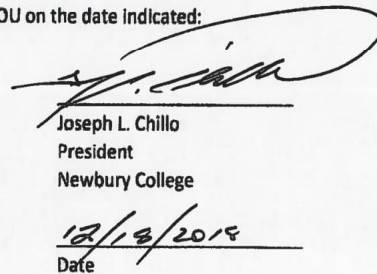 OU on the date indicated:
J. L. Chillo
Joseph L. Chillo
President
Newbury College
12/18/2018
Date